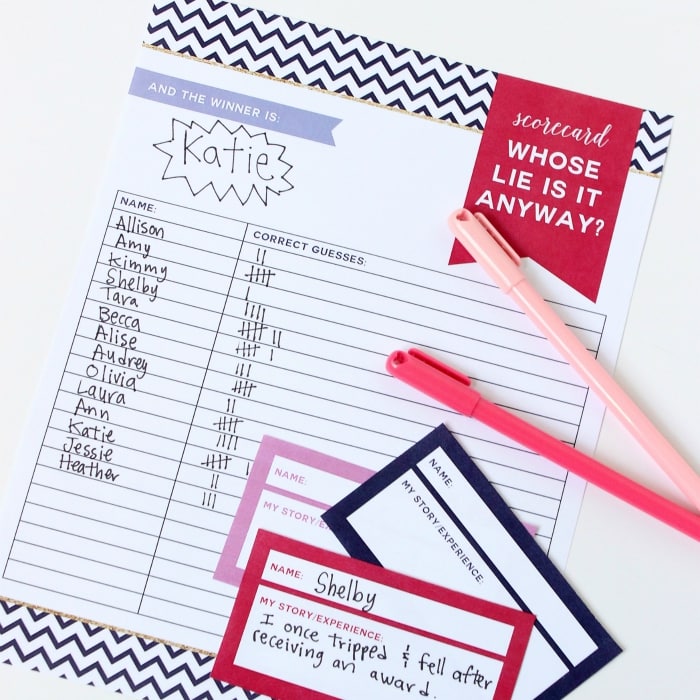 AND THE WINNER IS:
Katie
scorecard
WHOSE
LIE IS IT
ANYWAY?
NAME:
CORRECT GUESSES:
Allison
Amy
Kimmy
Shelby
Tara
Becca
Alise
Audrey
Olivia
Laura
Ann
Katie
Jessie
Heather
NAME:
MY STORY/
NAME:
MY STORY/EXPERIENCE:
NAME: Shelby
MY STORY/EXPERIENCE:
I once tripped & fell after
receiving an award.